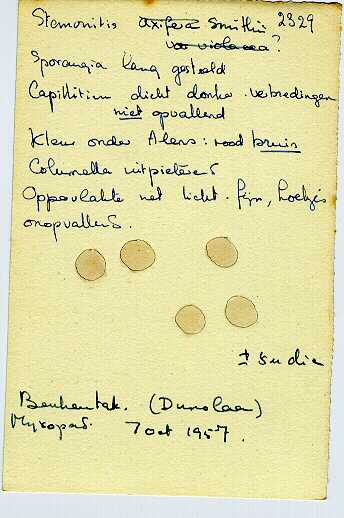 Stemonitis axifera Smithii 2329
var violacea?
Sporangia lang gesteeld
Capillitium dicht donker verbredingen
niet opvallend
Kleur onder A lens: rood bruin
Columella
Oppervlakte net licht. fijn, hoekjes
onopvallend.
± 8u dia
Berkenbak. (Duinlaan)
7 oct 1957.